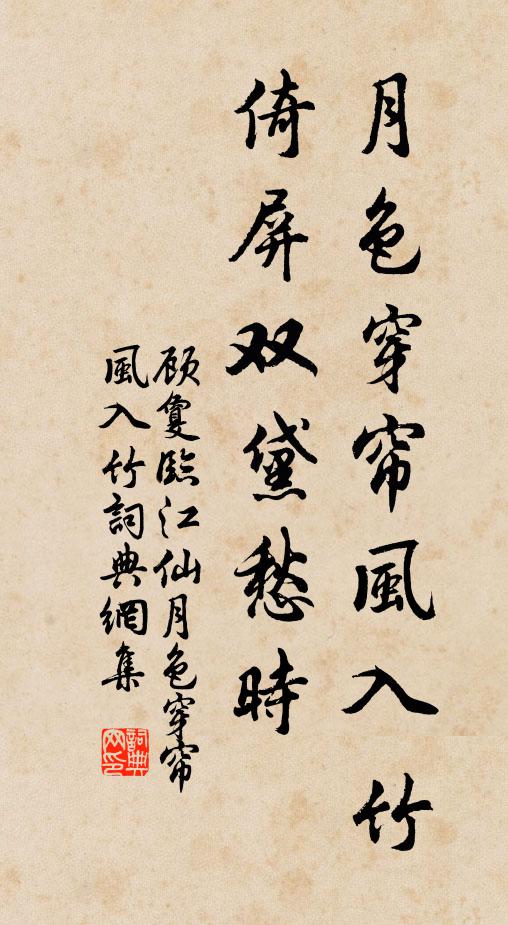 月色穿帘風入竹
倚屏双黛愁時
顾敻臨江仙月色穿帘
風入竹詞典網集
詞典网印